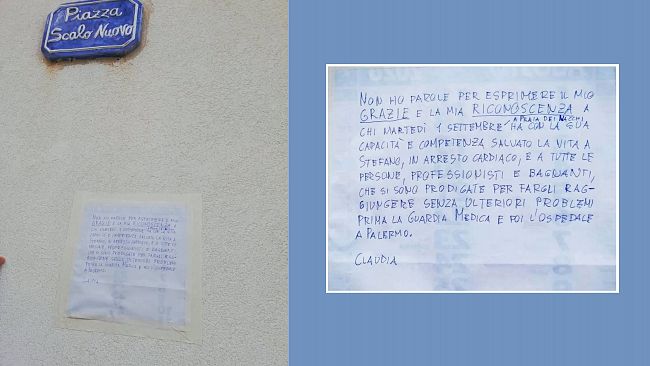 Piazza
Scalo Nuovo
NON HO PAROLE PER ESPRIMERE IL MIO
GRAZIE E LA MIA RICONOSCENZA A
CHI MARTEDÌ 1 SETTEMBRE A PRAIA DEI NACCHI HA CON LA SUA
CAPACITÀ E COMPETENZA SALVATO LA VITA A
STEFANO, IN ARRESTO CARDIACO, E A TUTTE LE
PERSONE, PROFESSIONISTI E BAGNANTI,
CHE SI SONO PRODIGATE PER FARGLI RAG-
GIUNGERE SENZA ULTERIORI PROBLEMI
PRIMA LA GUARDIA MEDICA E POI L'OSPEDALE
A PALERMO.
CLAUDIA